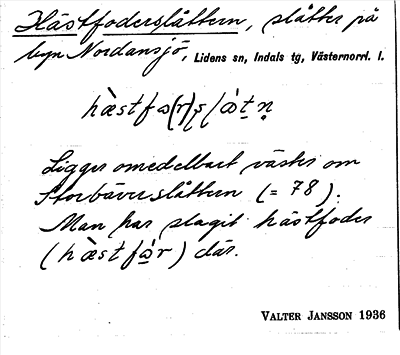 Hästfoderslåttern, slåtter på
byn Nordansjö, Lidens sn, Indals tg, Västernorrl. l.
hæ̀stfω(r)ʂlὼtn̥
Ligger omedelbart väster om
Storbäverslåttern (= 78).
Man har slagit hästfoder
(hæ̀stfὼr) där.
VALTER JANSSON 1936